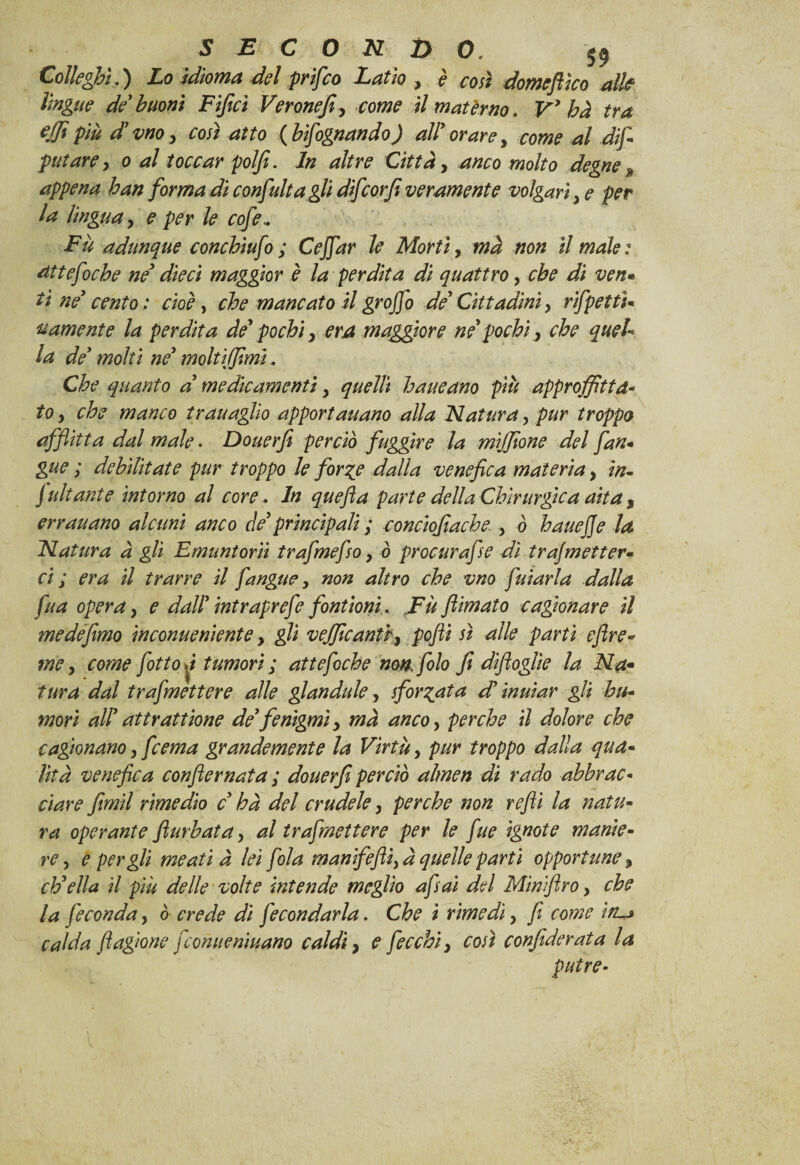 SECONDO. 59
Colleghi.) Lo idioma del priſco Latio, è così domeſtico alle
lingue de' buoni Fiſici Veroneſi, come il matèrno. V' hà tra
eſſi più d' vno, così atto (biſognando) all' orare, come al diſ-
putare, o al toccar polſi. In altre Città, anco molto degne,
appena han forma di conſulta gli diſcorſi veramente volgari, e per
la lingua, e per le coſe.
Fù adunque conchiuſo; Ceſſar le Morti, mà non il male:
atteſoche ne' dieci maggior è la perdita di quattro, che di ven-
ti ne' cento: cioè, che mancato il groſſo de' Cittadini, riſpetti-
uamente la perdita de' pochi, era maggiore ne' pochi, che quel-
la de' molti ne' moltiſſimi.
Che quanto a' medicamenti, quelli haueano più approffitta-
to, che manco trauaglio apportauano alla Natura, pur troppo
afflitta dal male. Douerſi perciò fuggire la miſſione del ſan-
gue; debilitate pur troppo le forze dalla venefica materia, in-
ſultante intorno al core. In queſta parte della Chirurgica aita,
errauano alcuni anco de' principali; concioſiache, ò haueſſe la
Natura à gli Emuntorii traſmeſſo, ò procuraſse di traſmetter-
ci; era il trarre il ſangue, non altro che vno ſuiarla dalla
ſua opera, e dall' intrapreſe fontioni. Fù ſtimato cagionare il
medeſimo inconueniente, gli veſſicanti, poſti sì alle parti eſtre-
me, come ſotto i tumori; atteſoche non ſolo ſi diſtoglie la Na-
tura dal traſmettere alle glandule, sforzata d' inuiar gli hu-
mori all' attrattione de' fenigmi, mà anco, perche il dolore che
cagionano, ſcema grandemente la Virtù, pur troppo dalla qua-
lità venefica conſternata; douerſi perciò almen di rado abbrac-
ciare ſimil rimedio c' hà del crudele, perche non reſti la natu-
ra operante ſturbata, al traſmettere per le ſue ignote manie-
re, e per gli meati à lei ſola manifeſti, à quelle parti opportune,
ch' ella il più delle volte intende meglio aſsai del Miniſtro, che
la ſeconda, ò crede di ſecondarla. Che i rimedi, ſi come in
calda ſtagione ſconueniuano caldi, e ſecchi, così conſiderata la
putre-